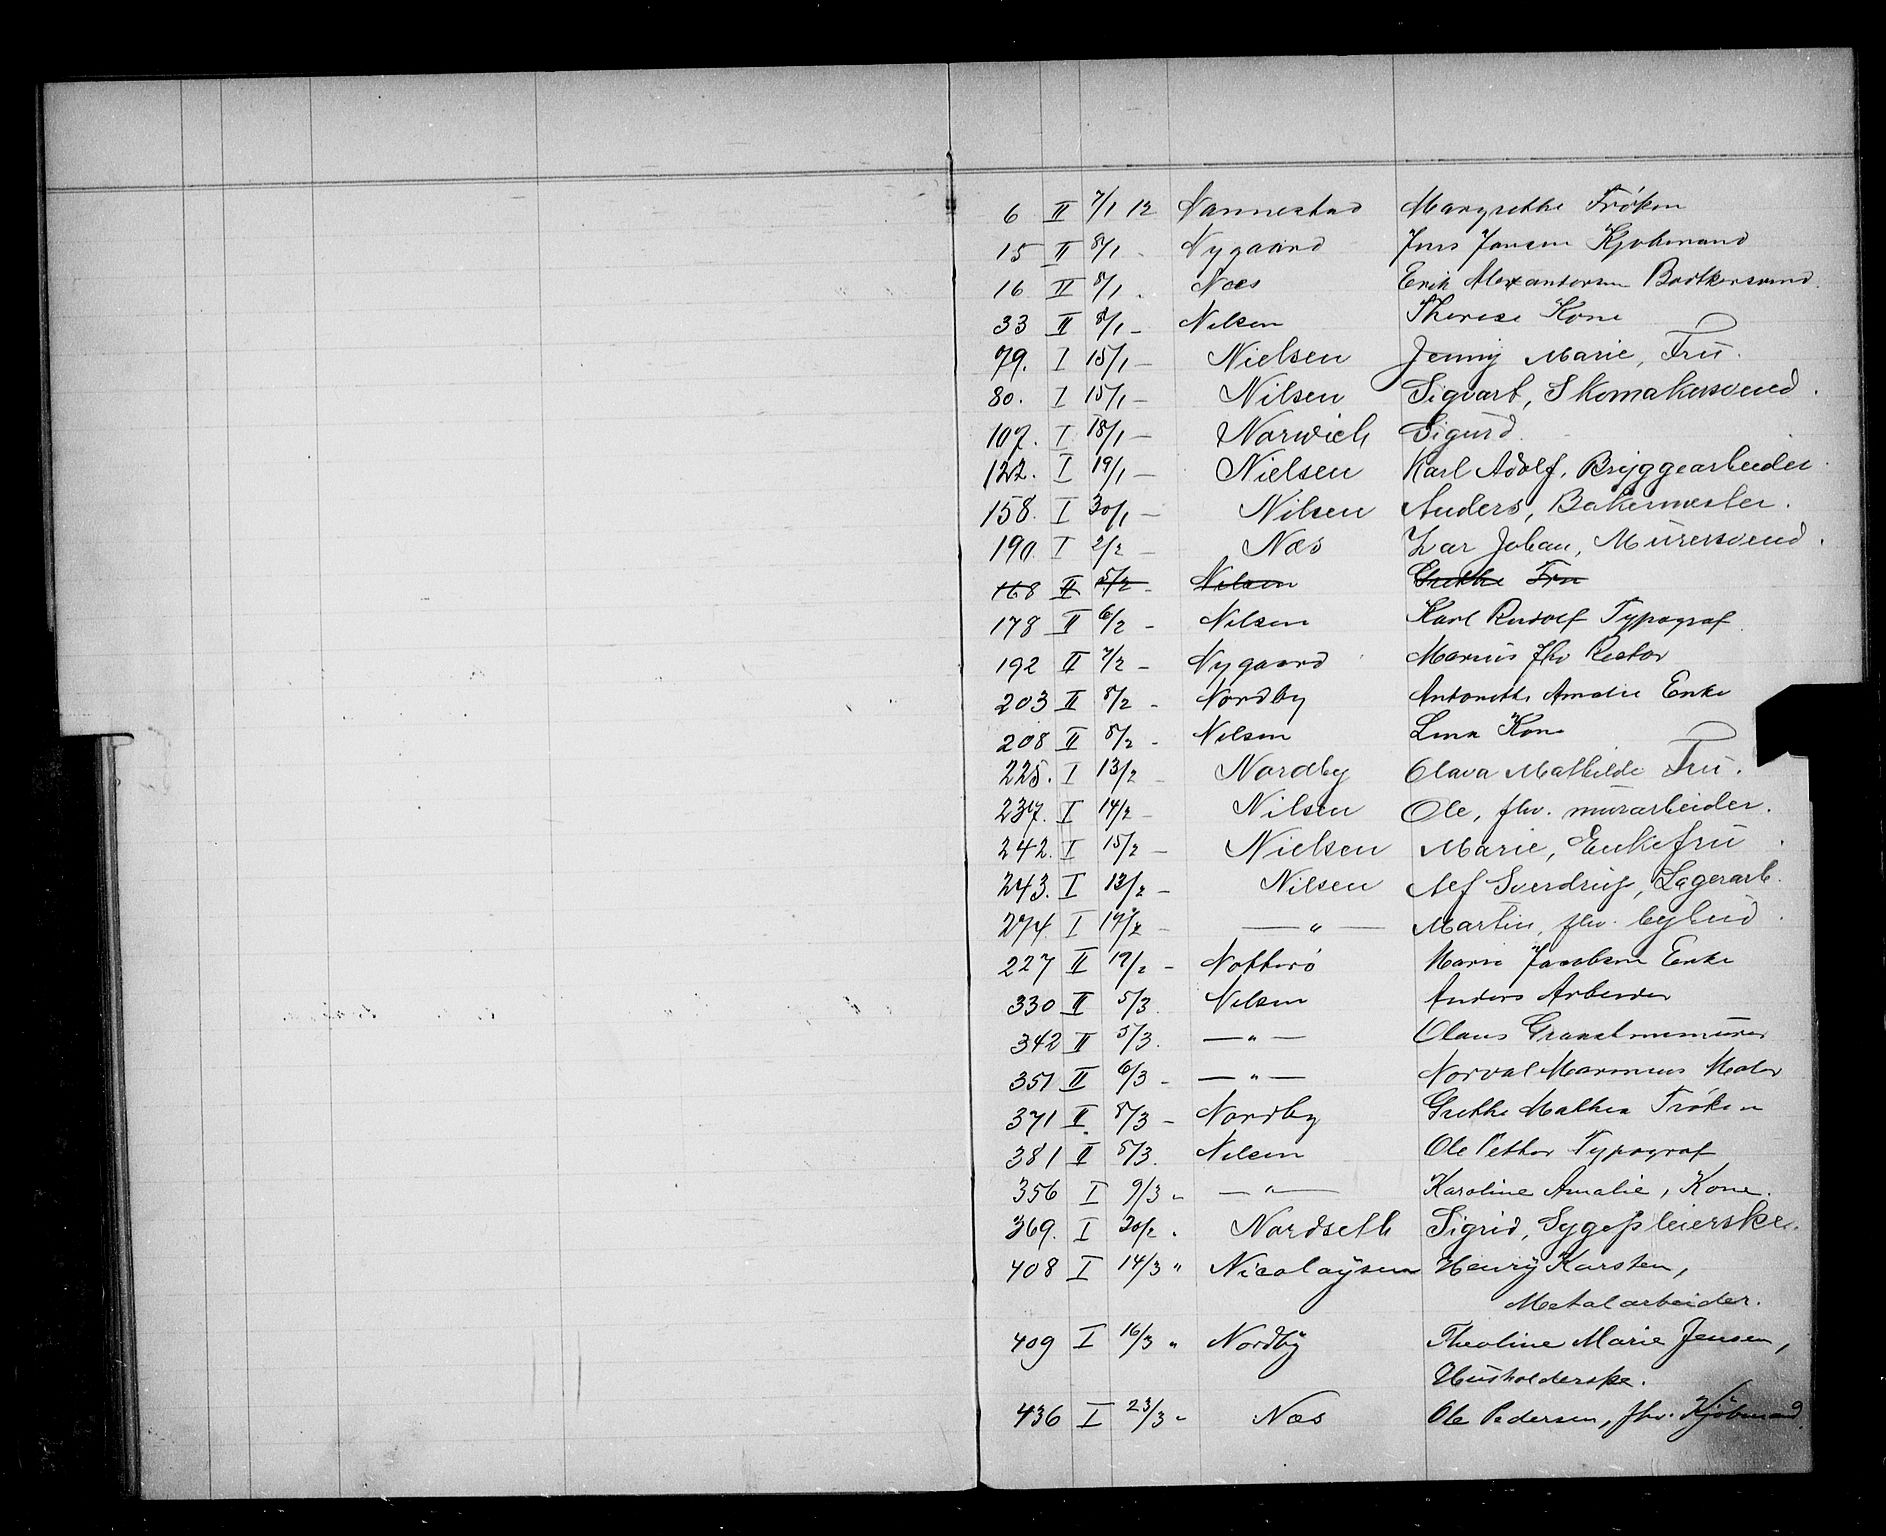 6 II 7/1 12 Nannestad Margrethe Frøken
15 II 8/1 - Nygaard Jens Jansen Kjøbmand
16 II 8/1 - Næs Erik Alexandersen Bødkersvend
33 II 8/1 - Nilsen Therese Kone
79. I 15/1 - Nielsen Jenny Marie, Fru.
80. I 15/1 - Nilsen Sigvart, Skomakersvend.
107. I 18/1 - Norwich Sigurd.
122. I 19/1 - Nielsen Karl Adolf, Bryggearbeider.
158. I 30/1 - Nilsen Anders, Bakermester.
190. I 2/2 - Næs Lar Johan, Murersvend.
168 II 5/2 - Nilsen Grethe Fru
178 II 6/2 - Nilsen Karl Rudolf Typograf
192 II 7/2 - Nygaard Marius fhv Rektor
203 II 8/2 - Nordby Antonette Amalie Enke
208 II 8/2 - Nilsen Lina Kone
225. I 13/2 - Nordby Olava Mathilde Fru.
237. I 14/2 - Nilsen Ole, fhv. murarbeider.
242. I 15/2 - Nielsen Marie, Enkefru.
243. I 13/2 - Nilsen Alf Sverdrup, Lagerarb.
274 I 17/2 - —"— Martin, fhv. bybud.
227 II 19/2 - Nøtterø Marie Jacobsen Enke
330 II 5/3. Nilsen Anders Arbeider
342 II 5/3. —"— Olaus Granitmurer
351 II 6/3 - —"— Norval Marinius Maler
371 II 8/3 - Nordby Grethe Mathea Frøken
381 II 8/3. Nilsen Ole Petter Typograf
356 I 9/3 " —"— Karoline Amalie, Kone.
369. I 20/2 " Nordseth Sigrid, Sygepleierske.
408 I 14/3 " Nicolaysen Henry Karsten,
Metalarbeider.
409 I 16/3 " Nordby Theoline Marie Jensen,
Husholderske.
436 I 23/3 " Næs Ole Pedersen, fhv. Kjøbmand.